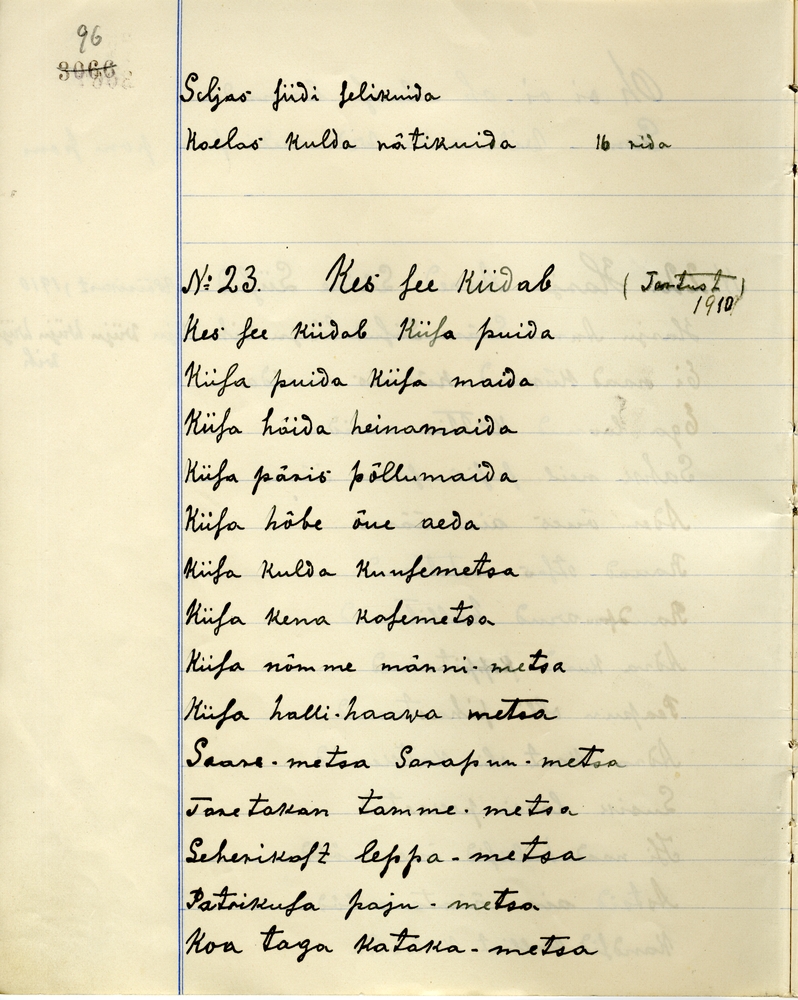 96
3066
Seljas siidi selikuida
Kaelas kulda nätikuida 16 rida
№ 23. Kes see kiidab (Tartust)
1910
Kes see kiidab Kiisa puida
Kiisa puida Kiisa maida
Kiisa häida heinamaida
Kiisa päris põllumaida
Kiisa hõbe õue aeda
Kiisa kulda kuusemetsa
Kiisa kena kasemetsa
Kiisa nõmme männi-metsa
Kiisa halli-haawa metsa
Saare-metsa Sarapuu-metsa
Taretakan tamme-metsa
leppa-metsa
paju-metsa
Koa taga kataka-metsa